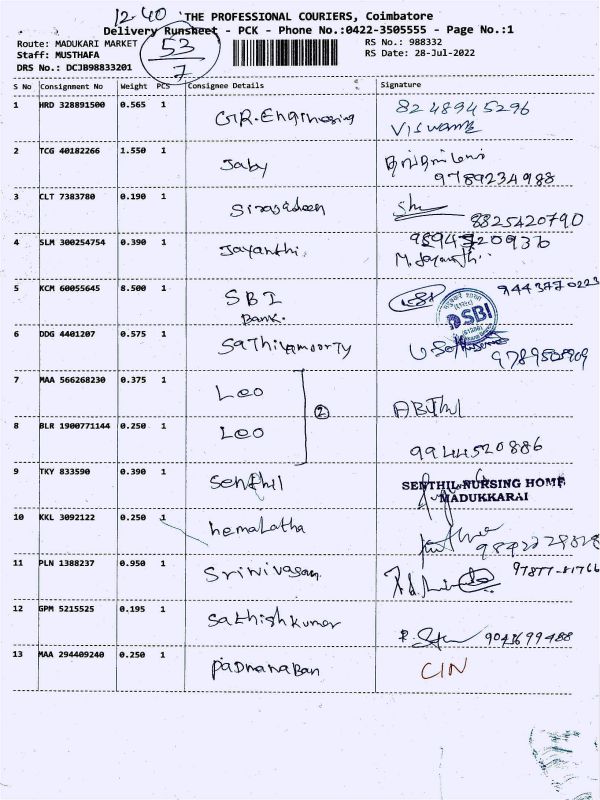 12-40
THE PROFESSIONAL COURIERS, Coimbatore
Delivery Runsheet - PCK - Phone No.:0422-3505555 - Page No.:1
Route: MADUKARI MARKET
53
7
RS No.: 988332
Staff: MUSTHAFA
RS Date: 28-Jul-2022
DRS No.: DCJB98833201
S No Consignment No Weight PCS Consignee Details Signature
1 HRD 328891500 0.565 1 G.R.Engineering 8248945296
2 TCG 40182266 1.550 1 Jaby
9789234988
3 CLT 7383780 0.190 1 Sirajudeen
8825420790
4 SLM 300254754 0.390 1 Jayanthi
M. Jayanthi
5 KCM 60055645 8.500 1 SBI Bank. SBI 9443770223
6 DDG 4401207 0.575 1 Sathiyamoorty
7 MAA 566268230 0.375 1 Leo 2
8 BLR 1900771144 0.250 1 Leo 9944520886
9 TKY 833590 0.390 1 Senthil SENTHIL NURSING HOME
MADUKKARAI
10 KKL 3092122 0.250 1 hemalatha
11 PLN 1388237 0.950 1 Srinivasan 97877-81766
12 GPM 5215525 0.195 1 Sathish kumar 9047699488
13 MAA 294409240 0.250 1 padmanaban CIN